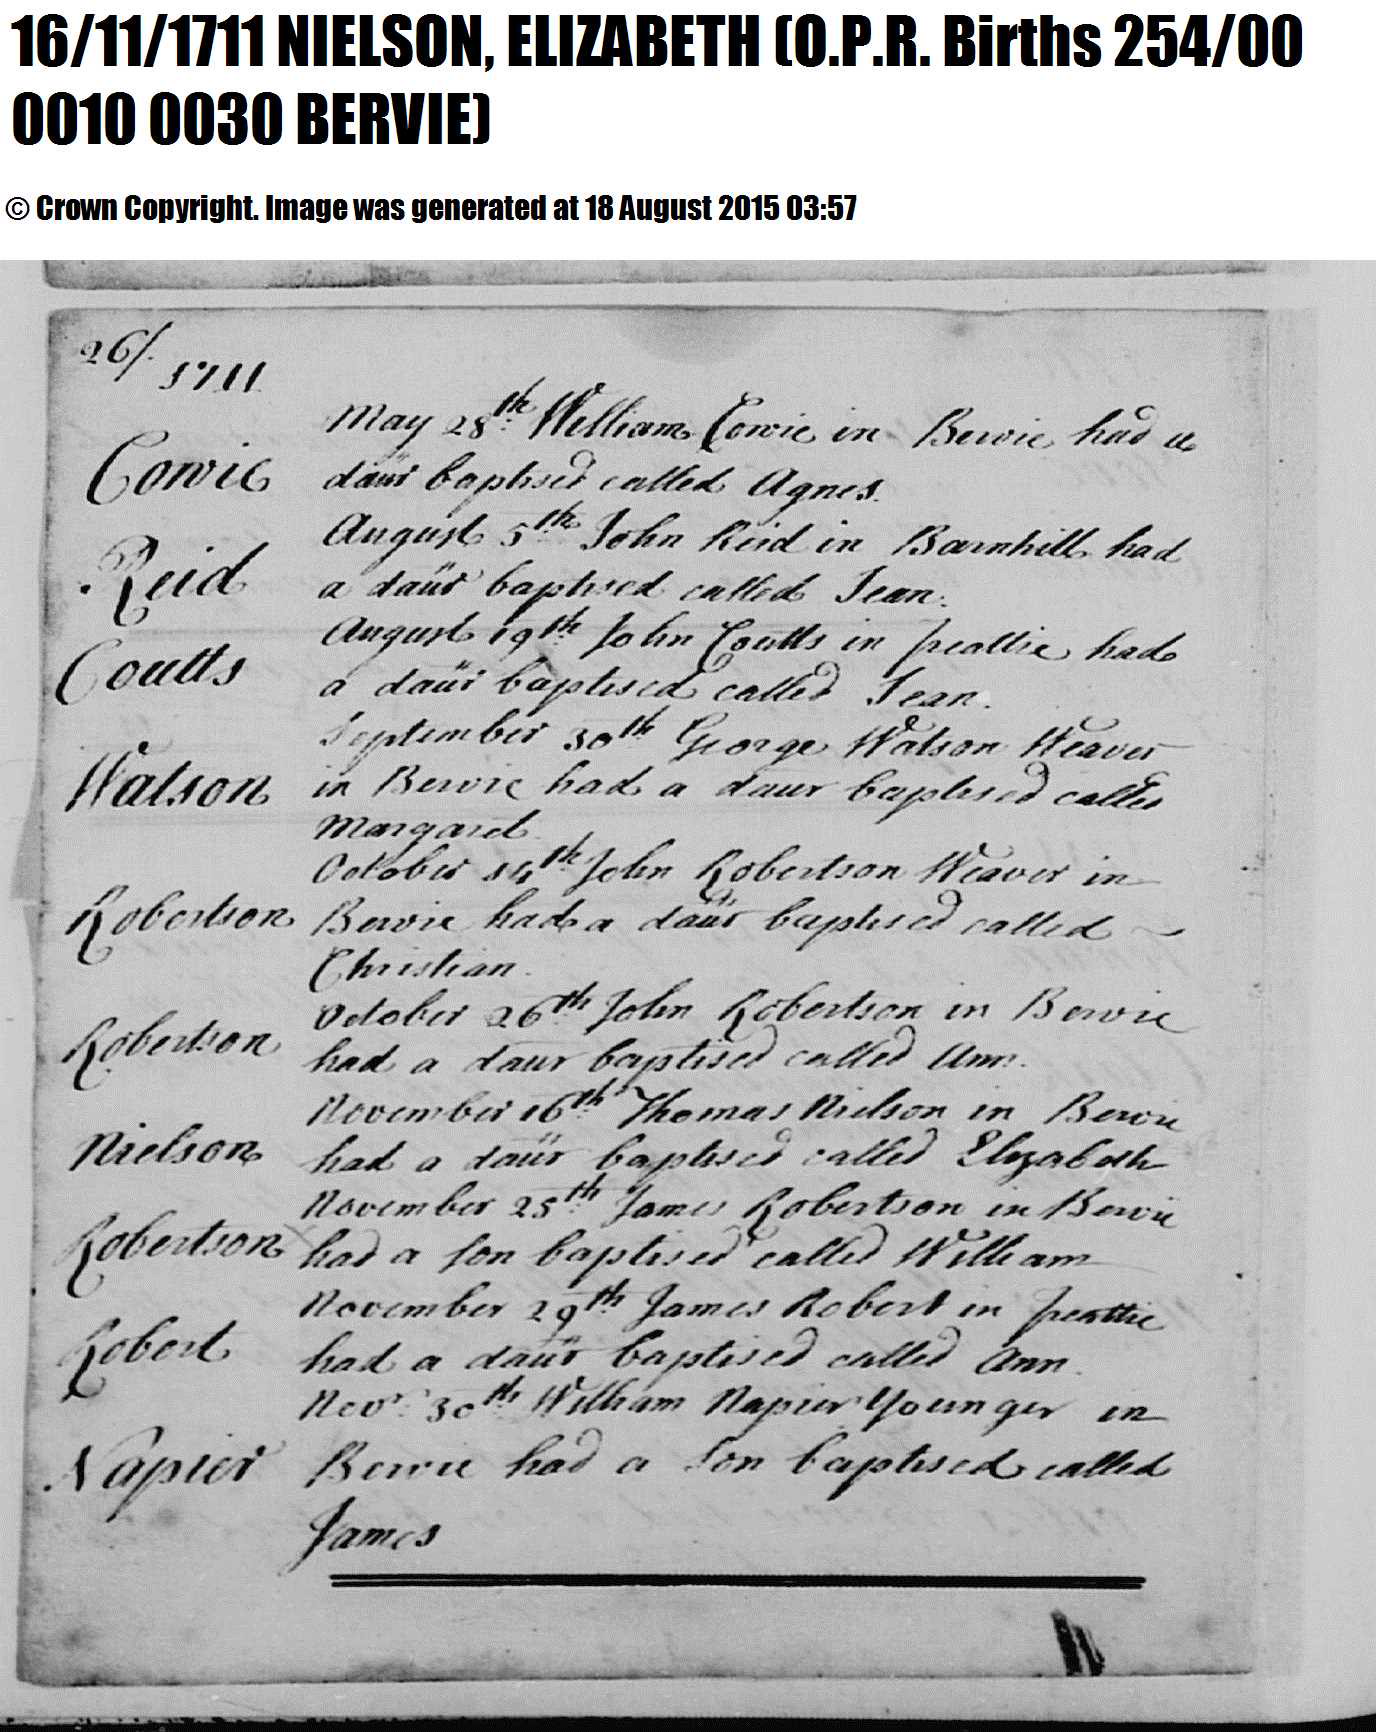 16/11/1711 NIELSON, ELIZABETH (O.P.R. Births 254/00
0010 0030 BERVIE)
© Crown Copyright. Image was generated at 18 August 2015 03:57
26/.
1711
May 28th William Cowie in Bervie had a
Cowie
daür baptised called Agnes.
August 5th John Reid in Barnhill had
Reid
a daür baptised called Jean.
August 19th John Coutts in peattie had
Coutts
a daür baptised called Jean.
September 30th George Watson Weaver
Watson
in Bervie had a daur baptised called
Margaret
October 14th John Robertson Weaver in
Robertson
Bervie had a daür baptised called ~
Christian.
October 26th John Robertson in Bervie
Robertson
had a daur baptised called Ann.
November 16th Thomas Nielson in Bervie
Nielson
had a daür baptised called Elizabeth
November 25th James Robertson in Bervie
Robertson
had a son baptised called William
November 29th James Robert in peattie
Robert
had a daür baptised called Ann.
Novr. 30th William Napier Younger in
Napier
Bervie had a son baptised called
James